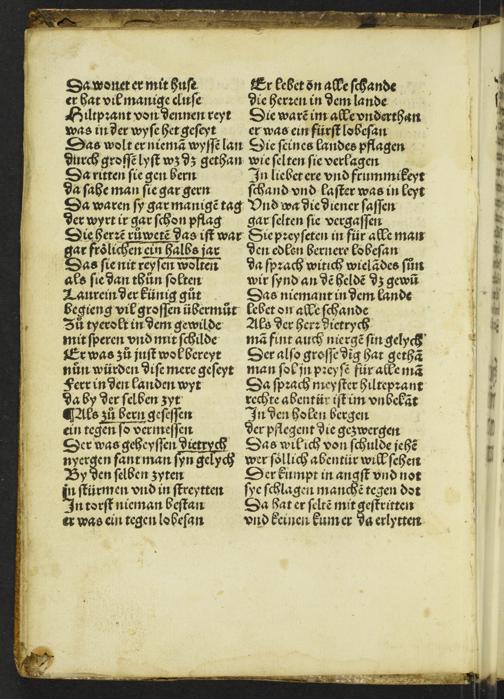 Da wonet er mit huse
er hat vil manige cluse
Hiltprant von dennen reyt
was in der wyse het geseyt
Das wolt er niemā wyssē lan
durch grossē lyst wz dz gethan
Da ritten sie gen bern
da sahe man sie gar gern
Da waren sy gar manigē tag
der wyrt ir gar schon pflag
Die herrē rūwetē das ist war
gar frölichen ein halbs jar
Das sie nit reysen wolten
als sie dan thůn solten
Laurein der künig gůt
begieng vil grossen übermůt
Zů tyerolt in dem gewilde
mit speren vnd mit schilde
Er was zů just wol bereyt
nůn würden dise mere geseyt
Ferr in den landen wyt
da by der selben zyt
¶Als zů bern gesessen
ein tegen so vermessen
Der was geheyssen dietrych
nyergen fant man syn gelych
By den selben zyten
in stürmen vnd in streytten
In torst nieman bestan
er was ein tegen lobesan
Er lebet ōn alle schande
die herren in dem lande
Die warē im alle vnderthan
er was ein fürst lobesan
Die seines landes pflagen
wie selten sie verlagen
In liebet ere vnd frummikeyt
schand vnd laster was in leyt
Vnd wa die diener sassen
gar selten sie vergassen
Sie preyseten in für alle man
den edlen bernere lobesan
da sprach witich wielādes sůn
wir synd an dē heldē dz gewū
Das niemant in dem lande
lebet on alle schande
Als der herr dietrych
mā fint auch niergē sin gelych
Der also grosse dīg hat gethā
man sol in preysē für alle mā
Da sprach meyster hilteprant
rechte abentür ist im vnbekāt
In den holen bergen
der pflegent die gezwergen
Das wil ich von schulde jehē
wer söllich abentür will sehen
Der kumpt in angst vnd not
sye schlagen manchē tegen dot
Da hat er seltē mit gestritten
vnd keinen kumer da erlytten